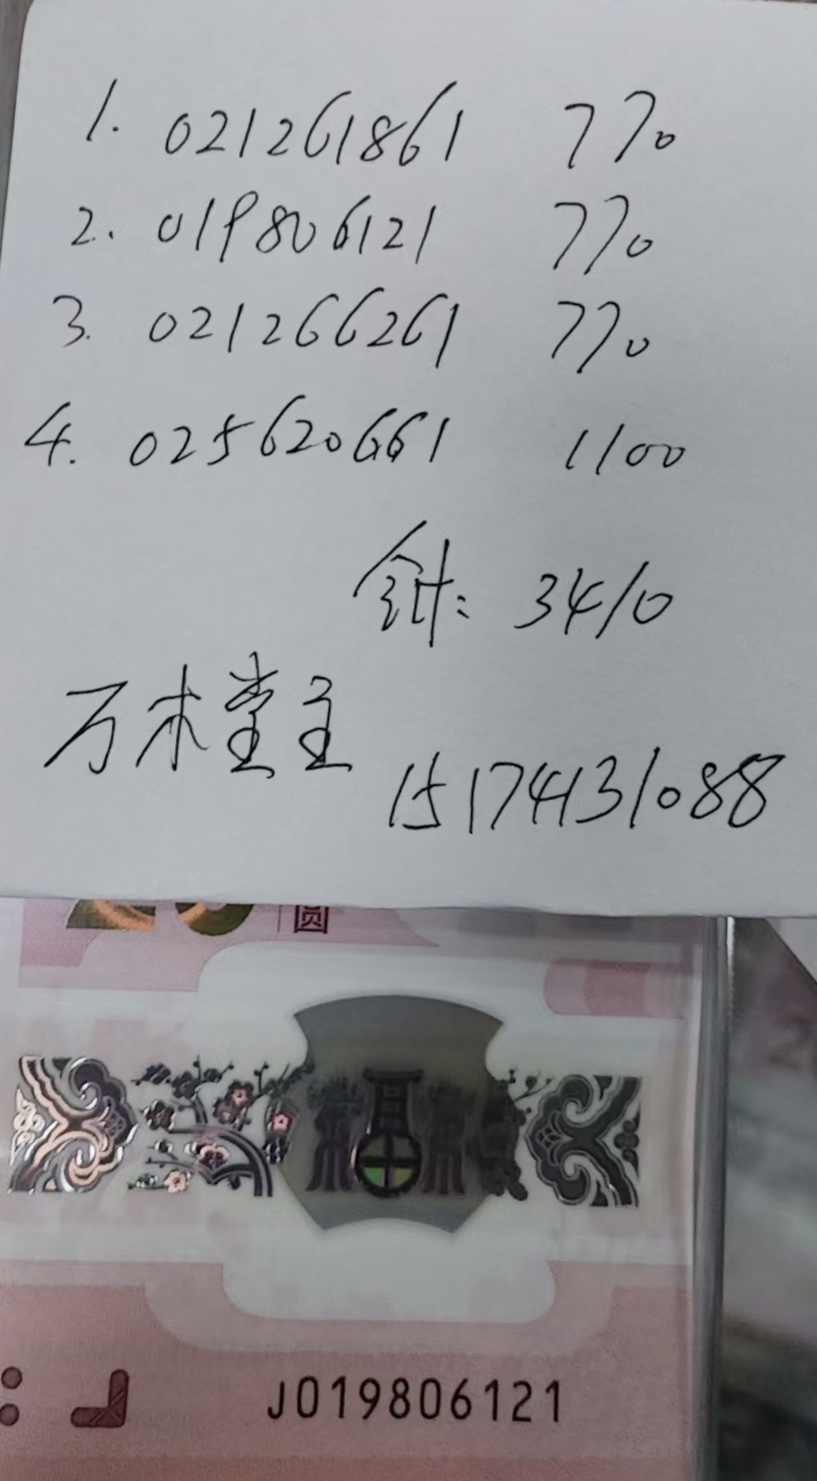 1. 021261861 770
2. 019806121 770
3. 021266261 770
4. 025620661 1100
合计: 3410
万木堂主
15174131088
20 圆
J019806121